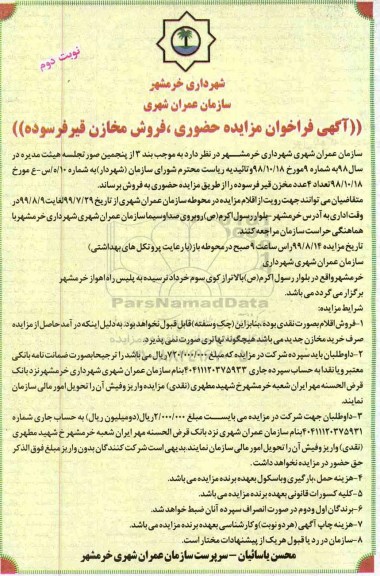 نوبت دوم
شهرداری خرمشهر
سازمان عمران شهری
((آگهی فراخوان مزایده حضوری ،فروش مخازن قیرفرسوده))
سازمان عمران شهری شهرداری خرمشهر در نظر دارد به موجب بند ۳ از پنجمین صورتجلسه هیئت مدیره در
سال ۹۸ به شماره ۹ مورخ ۹۸/۱۰/۱۸ و تائیدیه ریاست محترم شورای سازمان (شهردار) به شماره ۱۰/ه/س-ع مورخ
۹۸/۱۰/۱۸ تعداد ۴ عدد مخزن قیر فرسوده را از طریق مزایده حضوری به فروش برساند.
متقاضیان می توانند جهت رویت از اقلام مزایده در محوطه سازمان عمران شهری از تاریخ ۹۹/۷/۲۹ لغایت ۹۹/۸/۹ در
وقت اداری به آدرس خرمشهر -بلوار رسول اکرم (ص) روبروی صدا و سیما سازمان عمران شهری شهرداری خرمشهر با
هماهنگی حراست سازمان مراجعه کنند.
تاریخ مزایده ۹۹/۸/۱۴ راس ساعت ۹ صبح در محوطه باز (با رعایت پروتکل های بهداشتی)
سازمان عمران شهری شهرداری
خرمشهر واقع در بلوار رسول اکرم (ص) بالاتر از کوی سوم خرداد نرسیده به پلیس راه اهواز خرمشهر
برگزار می گردد می باشد.
شرایط مزایده:
۱-فروش اقلام بصورت نقدی بوده ،بنابراین (چک و سفته) قابل قبول نخواهد بود. به دلیل اینکه در آمد حاصل از مزایده
صرف خرید مخازن جدید می باشد هیچگونه تهاتری صورت نمی پذیرد.
۲-داوطلبان باید سپرده شرکت در مزایده که مبلغ ۷۲۰/۰۰۰/۰۰۰ ریال می باشد را ترجیحا بصورت ضمانت نامه بانکی
معتبر و یا نقدا به حساب سپرده جاری ۴۰۴۱۱۱۲۰۳۷۵۹۳۳ بنام سازمان عمران شهری شهرداری خرمشهر نزد بانک
قرض الحسنه مهر ایران شعبه خرمشهر خ شهید مطهری (نقدی) مزایده واریز و فیش آن را تحویل امور مالی سازمان
نمایند.
۳-داوطلبان جهت شرکت در مزایده می بایست مبلغ ۲/۰۰۰/۰۰۰ ریال (دو میلیون ریال) به حساب جاری شماره
۴۰۴۱۱۱۲۰۳۷۵۹۳۱ بنام سازمان عمران شهری نزد بانک قرض الحسنه مهر ایران شعبه خرمشهر خ شهید مطهری
(نقدی) واریز و فیش آن را تحویل امور مالی سازمان نمایند.بدیهی است شرکت کنندگان بدون واریز مبلغ فوق الذکر
حق حضور در مزایده نخواهند داشت.
۴-هزینه حمل ،بارگیری و باسکول بعهده برنده مزایده می باشد.
۵-کلیه کسورات قانونی بعهده برنده مزایده می باشد.
۶-برندگان اول و دوم در صورت انصراف سپرده آنان ضبط خواهد شد.
۷-هزینه چاپ آگهی (هر دو نوبت) و کارشناسی بعهده برنده مزایده می باشد.
۸-سازمان در رد یا قبول هر یک از پیشنهادات مختار است.
محسن پاسائیان - سرپرست سازمان عمران شهری خرمشهر